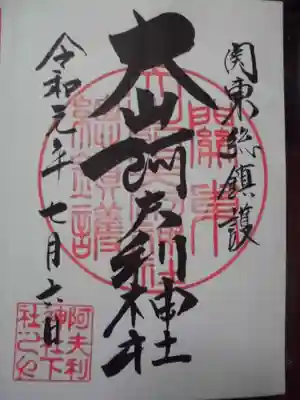 関東総鎮護
大山阿夫利神社
令和元年七月六日
阿夫利
神社下
社之印